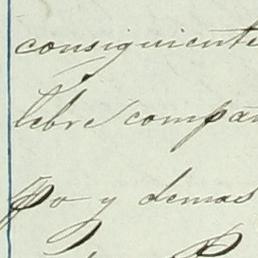 consiguiente
lebre compa
po y demas